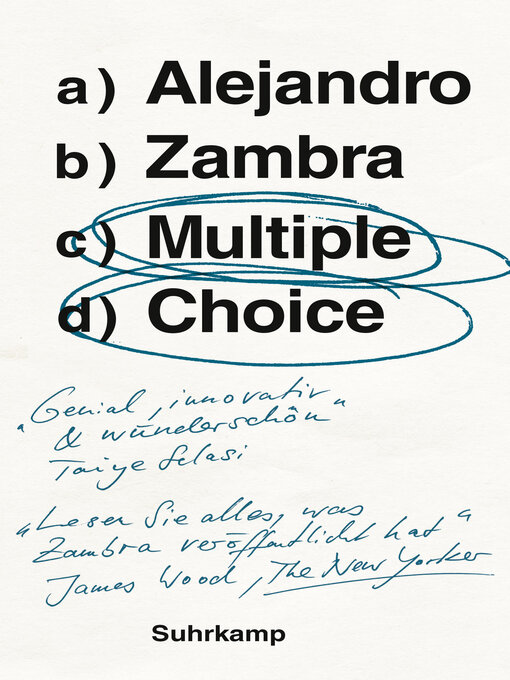 a) Alejandro
b) Zambra
c) Multiple
d) Choice
„Genial, innovativ
& wunderschön“
Taiye Selasi
„Lesen Sie alles, was
Zambra veröffentlicht hat“
James Wood, The New Yorker
Suhrkamp